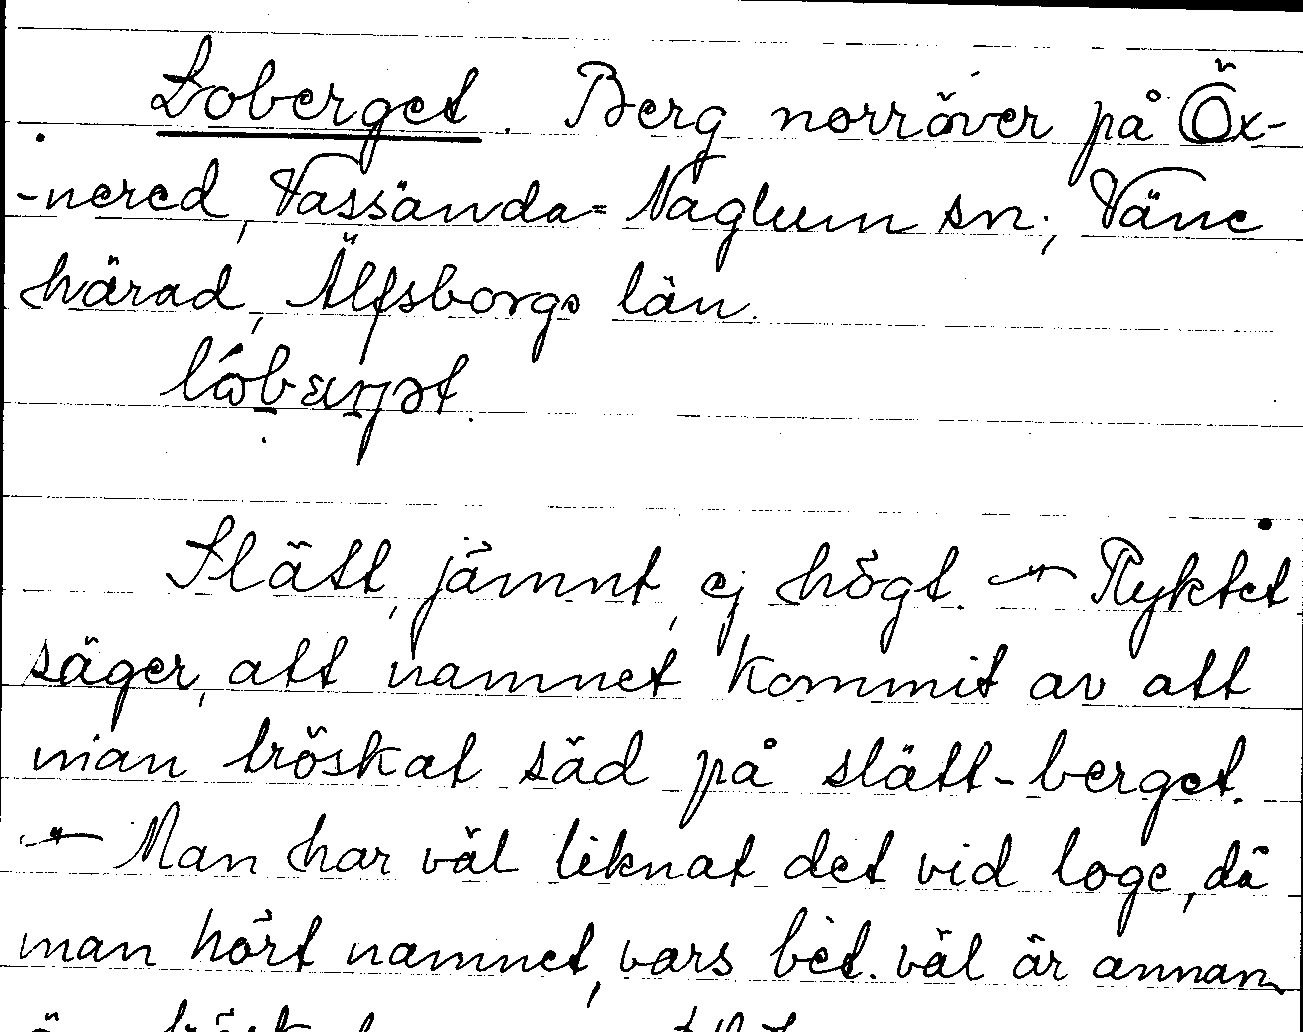 Loberget. Berg norröver på Öx-
-nered, Vassända-Naglum sn; Väne
härad, Älfsborgs län.
Slätt, jämnt, ej högt. — Ryktet
säger, att namnet kommit av att
man tröskat säd på slätt-berget.
— Man har väl liknat det vid loge, då
man hört namnet, vars bet. väl är annan